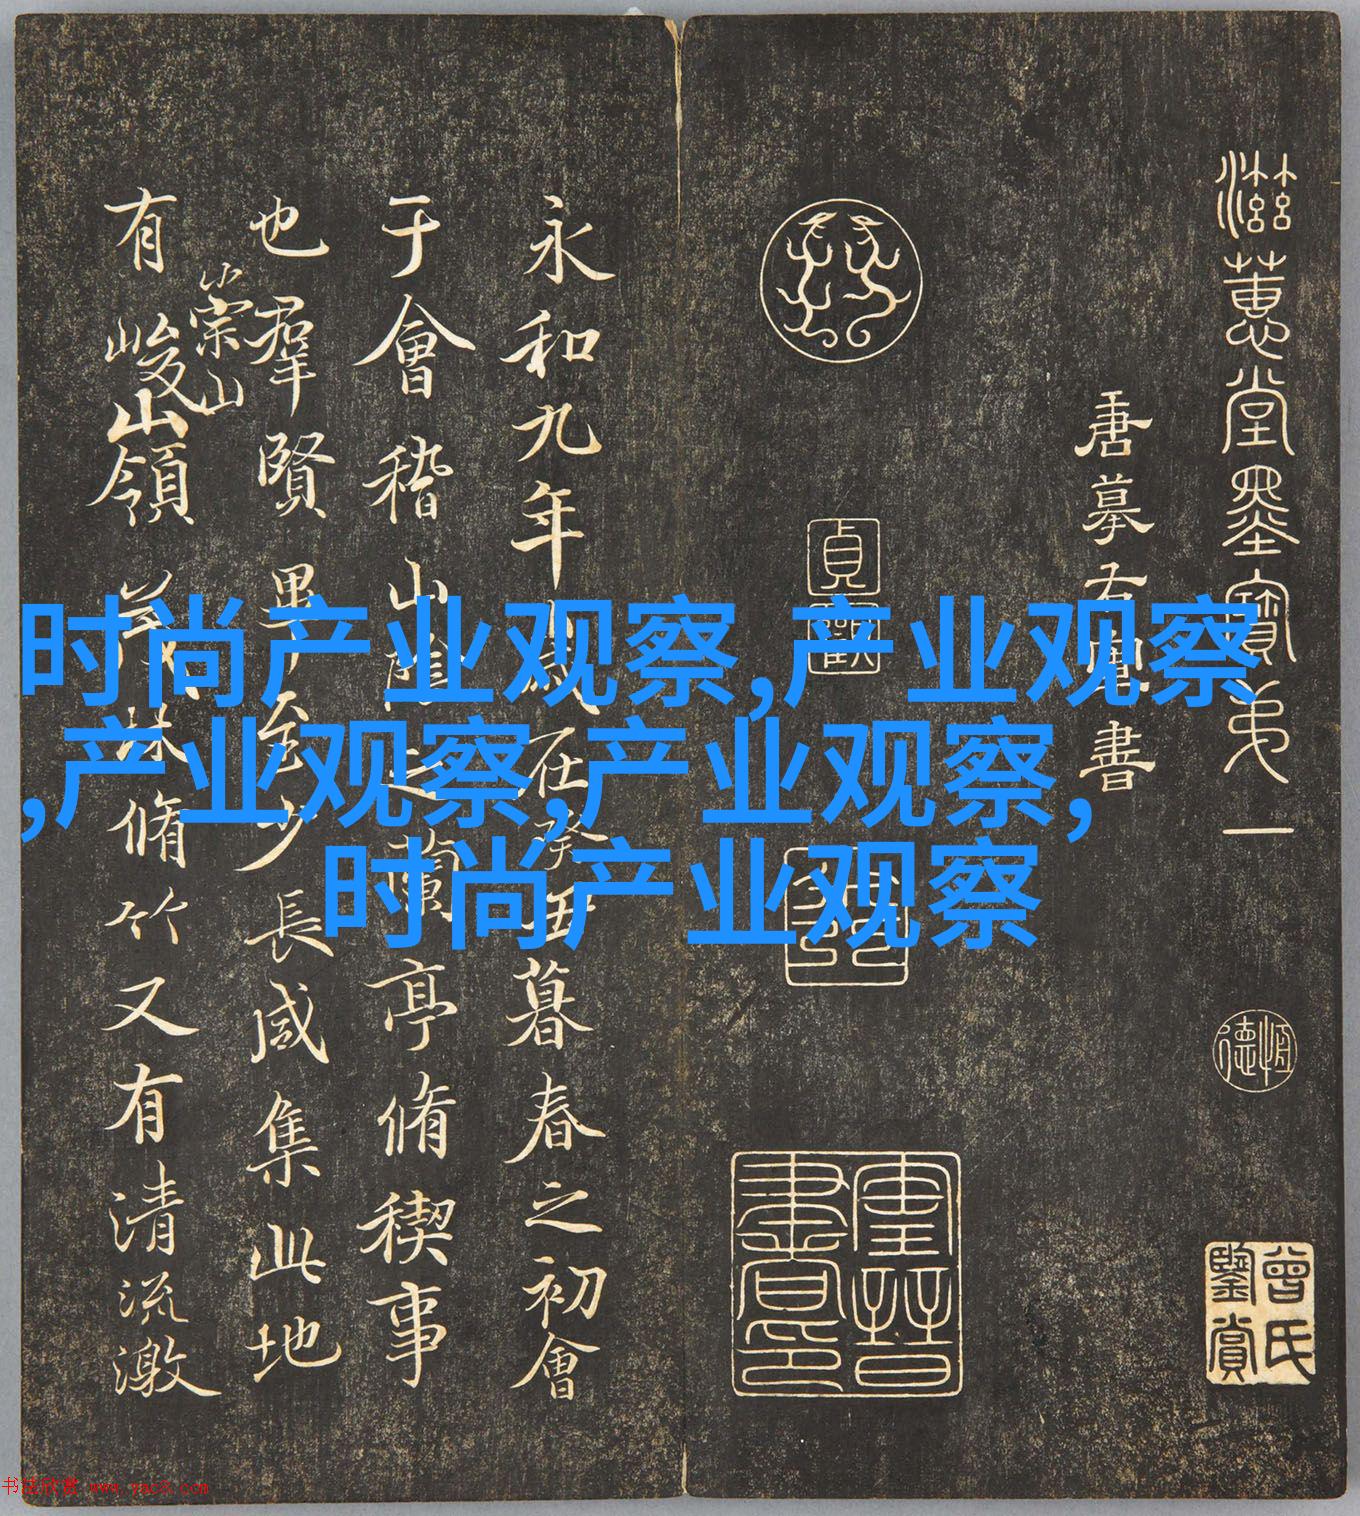 滋蕙堂墨寶弟一
唐摹右軍書
貞觀
恒德
曾氏鑒賞
永和九年歲在癸丑暮春之初會
于會稽山陰之蘭亭脩稧事
也羣賢畢至少長咸集此地
有崇山峻領茂林脩竹又有清流激
时尚产业观察,产业观察
,产业观察,产业观察,
时尚产业观察
书法欣赏 www.yac8.com